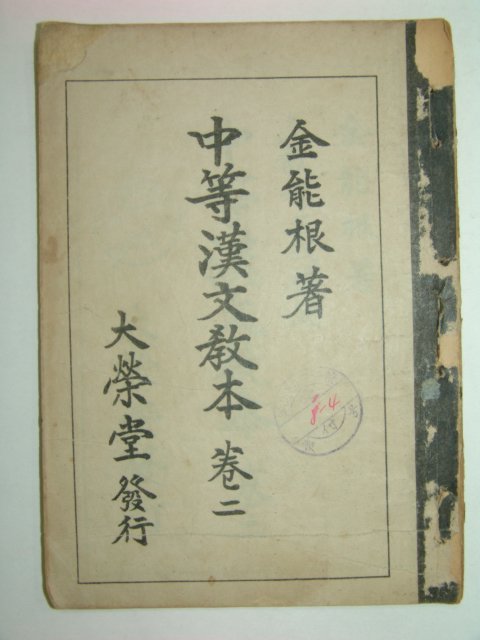 金能根著
中等漢文教本 卷二
大榮堂 發行
8-4